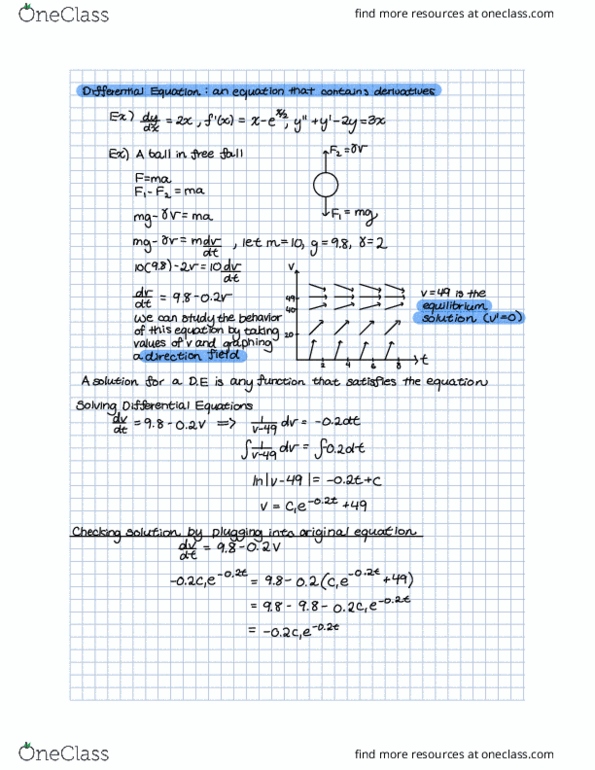 OneClass
find more resources at oneclass.com
Differential Equation: an equation that contains derivatives
Ex) dy/dx = 2x, f'(x) = x-e^x/2, y" + y' - 2y = 3x
Ex) A ball in free fall
F₂ = γv
F=ma
F₁ - F₂ = ma
F₁ = mg
mg - γv = ma
mg - γv = m dv/dt, let m=10, g=9.8, γ=2
10(9.8) - 2v = 10 dv/dt
dv/dt = 9.8 - 0.2v
we can study the behavior
of this equation by taking
values of v and graphing
a direction field
v
49
40
20
2 4 6 8 t
v=49 is the
equilibrium
solution (v'=0)
A solution for a D.E is any function that satisfies the equation
Solving Differential Equations
dv/dt = 9.8 - 0.2v => 1/v-49 dv = -0.2dt
∫ 1/v-49 dv = ∫-0.2dt
ln|v-49| = -0.2t+c
v = c₁e^-0.2t + 49
Checking solution by plugging into original equation
dv/dt = 9.8 - 0.2v
-0.2c₁e^-0.2t = 9.8 - 0.2(c₁e^-0.2t + 49)
= 9.8 - 9.8 - 0.2c₁e^-0.2t
= -0.2c₁e^-0.2t
OneClass
find more resources at oneclass.com